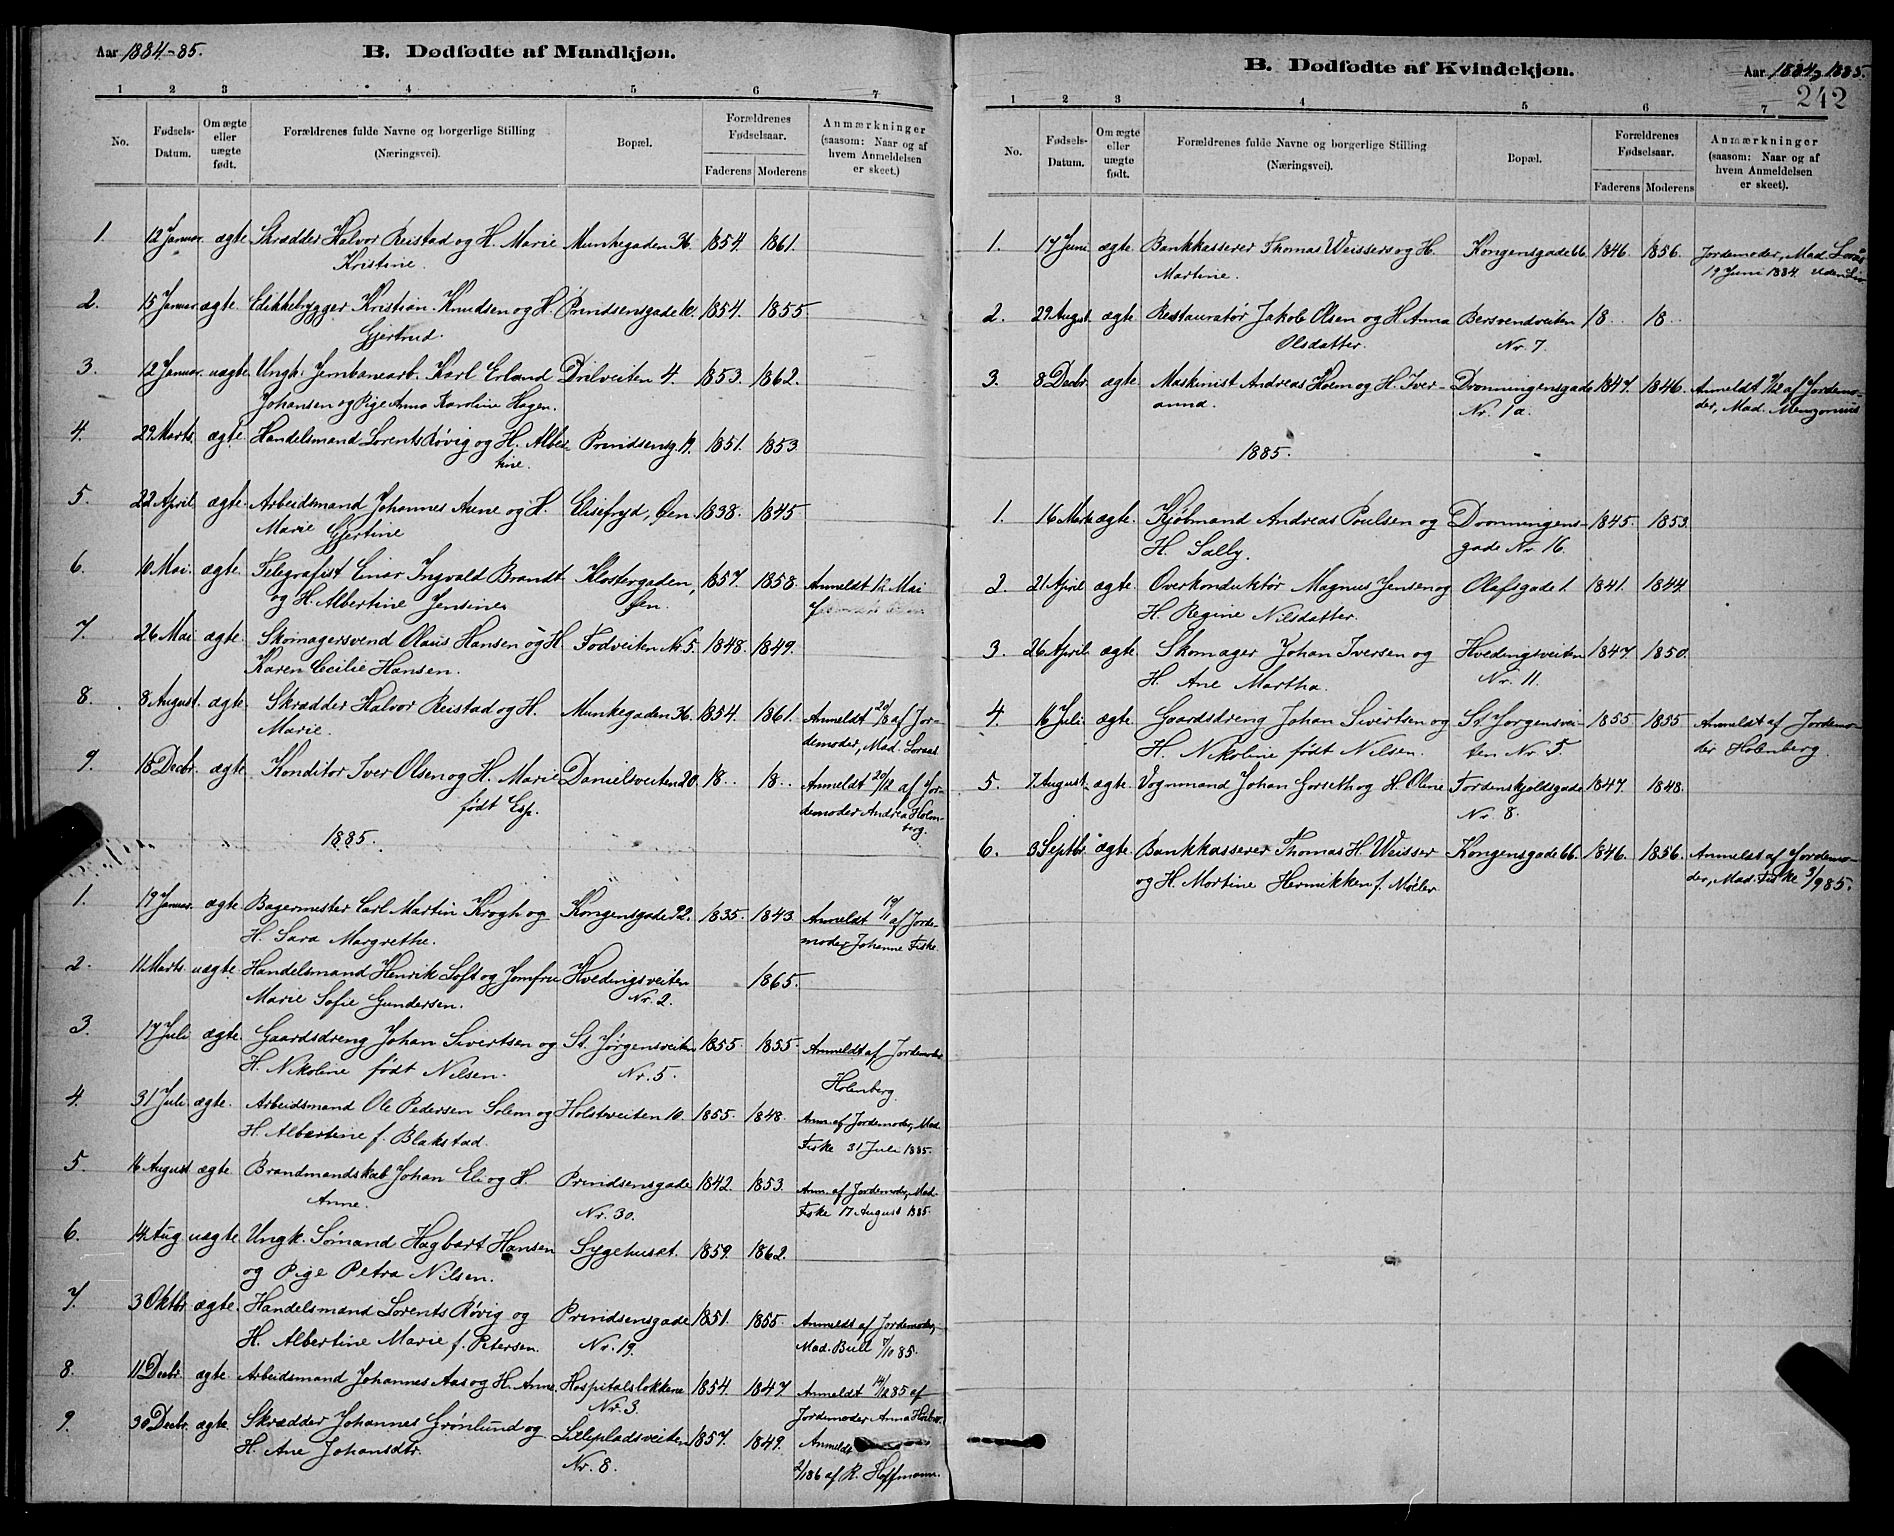 Aar 1884-85.
B. Dødfødte af Mandkjøn.
1 2 3 4 5 6 7
No.
Fødsels-Datum.
Om ægte eller uægte født.
Forældrenes fulde Navne og borgerlige Stilling (Næringsvei).
Bopæl.
Forældrenes Fødselsaar.
Faderens Moderens
Anmærkninger (saasom: Naar og af hvem Anmeldelsen er skeet.)
1. 12 Januar. ægte Skrædder Halvor Reistad og H. Marie Munkegaden 36. 1854. 1861.
Kristine.
2. 15 Januar ægte. Eddikebrygger Kristian Knudsen og H. Prindsensgade 10. 1854. 1855.
Gjertrud.
3. 12 Januar. uægte. Ungk. Jernbanearb. Karl Erland Prilveiten 4. 1853. 1862.
Johansen og Pige Anna Karoline Hagen.
4. 29 Marts. ægte. Handelsmand Lorents Røvig og H. Alber- Prindsensg. 19. 1851. 1853.
tine.
5. 22 April ægte. Arbeidsmand Johannes Aune og H. Elisefryd, Øen. 1838. 1845
Marie Gjertine
6. 10 Mai. ægte. Telegrafist Einar Ingvald Brandt Klostergaden, 1857. 1858. Anmeldt 12 Mai
og H. Albertine Jensine Øen.
7. 26 Mai ægte. Skomagersvend Olaus Hansen og H. Fodveiten Nr. 5. 1848. 1849.
Karen Cecilie Hansen.
8. 8 August. ægte. Skrædder Halvor Reistad og H. Munkegaden 36. 1854. 1861. Anmeldt 20/8 af Jor-
Marie. demoder, Mad. Loraas
9. 18 Decbr. ægte. Konditor Iver Olsen og H. Marie Danielsveiten 20. 18.. 18.. Anmeldt 20/12 af Jor-
født Esp. demoder Andrea Holm-
berg.
1885.
1. 19 Januar. ægte Bagermester Carl Martin Krogh og Kongensgade 92. 1835. 1843. Anmeldt 19/1 af Jorde-
H. Sara Margrethe. moder Johanne Fiske.
2. 11 Marts uægte. Handelsmand Henrik Loft og Jomfru Hvedingsveiten 1865.
Marie Sofie Gundersen. Nr. 2.
3. 17 Juli ægte. Gaardsdreng Johan Sivertsen og St. Jørgensveiten 1855. 1855. Anmeldt af Jordemoder
H. Nikoline født Nilsen. Nr. 5. Holenberg
4. 31 Juli ægte. Arbeidsmand Ole Pedersen Solem og Holstveiten 10. 1855. 1848. Anm. af Jordemoder, Mad.
H. Albertine f. Blakstad. Fiske 31 Juli 1885.
5. 16 August ægte. Brandmandskab Johan Eli og H. Prindsensgade 1842. 1853. Anm. af Jordemoder, Mad.
Anne. Nr. 30. Fiske 17 August 1885.
6. 14 Aug. uægte. Ungk. Sømand Hagbart Hansen Sygehuset. 1859. 1862.
og Pige Petra Nilsen.
7. 3 Oktbr. ægte. Handelsmand Lorents Røvig og Prindsensgade 1851. 1855. Anmeldt af Jordemoder,
H. Albertine Marie f. Petersen. Nr. 19. Mad. Bull 7/10 85.
8. 11 Decbr. ægte. Arbeidsmand Johannes Aas og H. Anne. Hospitalsløkkene 1854. 1847. Anmeldt 14/12 85 af
Nr. 3. Jordemoder Anna
9. 30 Decbr. ægte. Skrædder Johannes Grønlund og Lilleplads veiten 1857. 1849. Anmeldt
H. Ane Johansdtr. Nr. 8. 2/1 86 af R. Hoffmann.
B. Dødfødte af Kvindekjøn.
Aar 1884, 1885.
242
1 2 3 4 5 6 7
No.
Fødsels-Datum.
Om ægte eller uægte født.
Forældrenes fulde Navne og borgerlige Stilling (Næringsvei).
Bopæl.
Forældrenes Fødselsaar.
Faderens Moderens
Anmærkninger (saasom: Naar og af hvem Anmeldelsen er skeet).
1. 17 Juni ægte. Bankkasserer Thomas Weissers og H. Kongensgade 66. 1846. 1856. Jordemoder, Mad. Loraas
Martine. 19 Juni 1884.
2. 29 August ægte. Restauratør Jakob Olsen og H. Anna Bersvendveiten 18.. 18..
Olsdatter. Nr. 7.
3. 8 Decbr. ægte. Maskinist Andreas Holm og H. Iver- Dronningensgade 1847. 1846. Anmeldt 9/12 af Jordemo-
anna. Nr. 1a. der, Mad. Menzonius
1885.
1. 16 Marts ægte. Kjøbmand Andreas Poulsen og Dronningens- 1845. 1853.
H. Sally. gade Nr. 16.
2. 21 April ægte. Overkonduktør Magnus Jensen og Olafsgade 1. 1841. 1844.
H. Regine Nilsdatter.
3. 26 April. ægte. Skomager Johan Iversen og Hvedingsveiten 1847. 1850.
H. Ane Martha. Nr. 11.
4. 16 Juli ægte. Gaardsdreng Johan Sivertsen og St. Jørgensvei- 1855. 1855 Anmeldt af Jordemo-
H. Nikoline født Nilsen. ten Nr. 5. der Holenberg.
5. 7 August. ægte. Vognmand Johan Gorseth og H. Oline Tordenskjoldsgade 1847. 1848.
Nr. 8.
6. 3 Septbr. ægte. Bankkasserer Thomas H. Weisser Kongensgade 66. 1846. 1856. Anmeldt af Jordemo-
og H. Martine Hermikken f. Møller. der, Mad. Fiske 3/9 85.